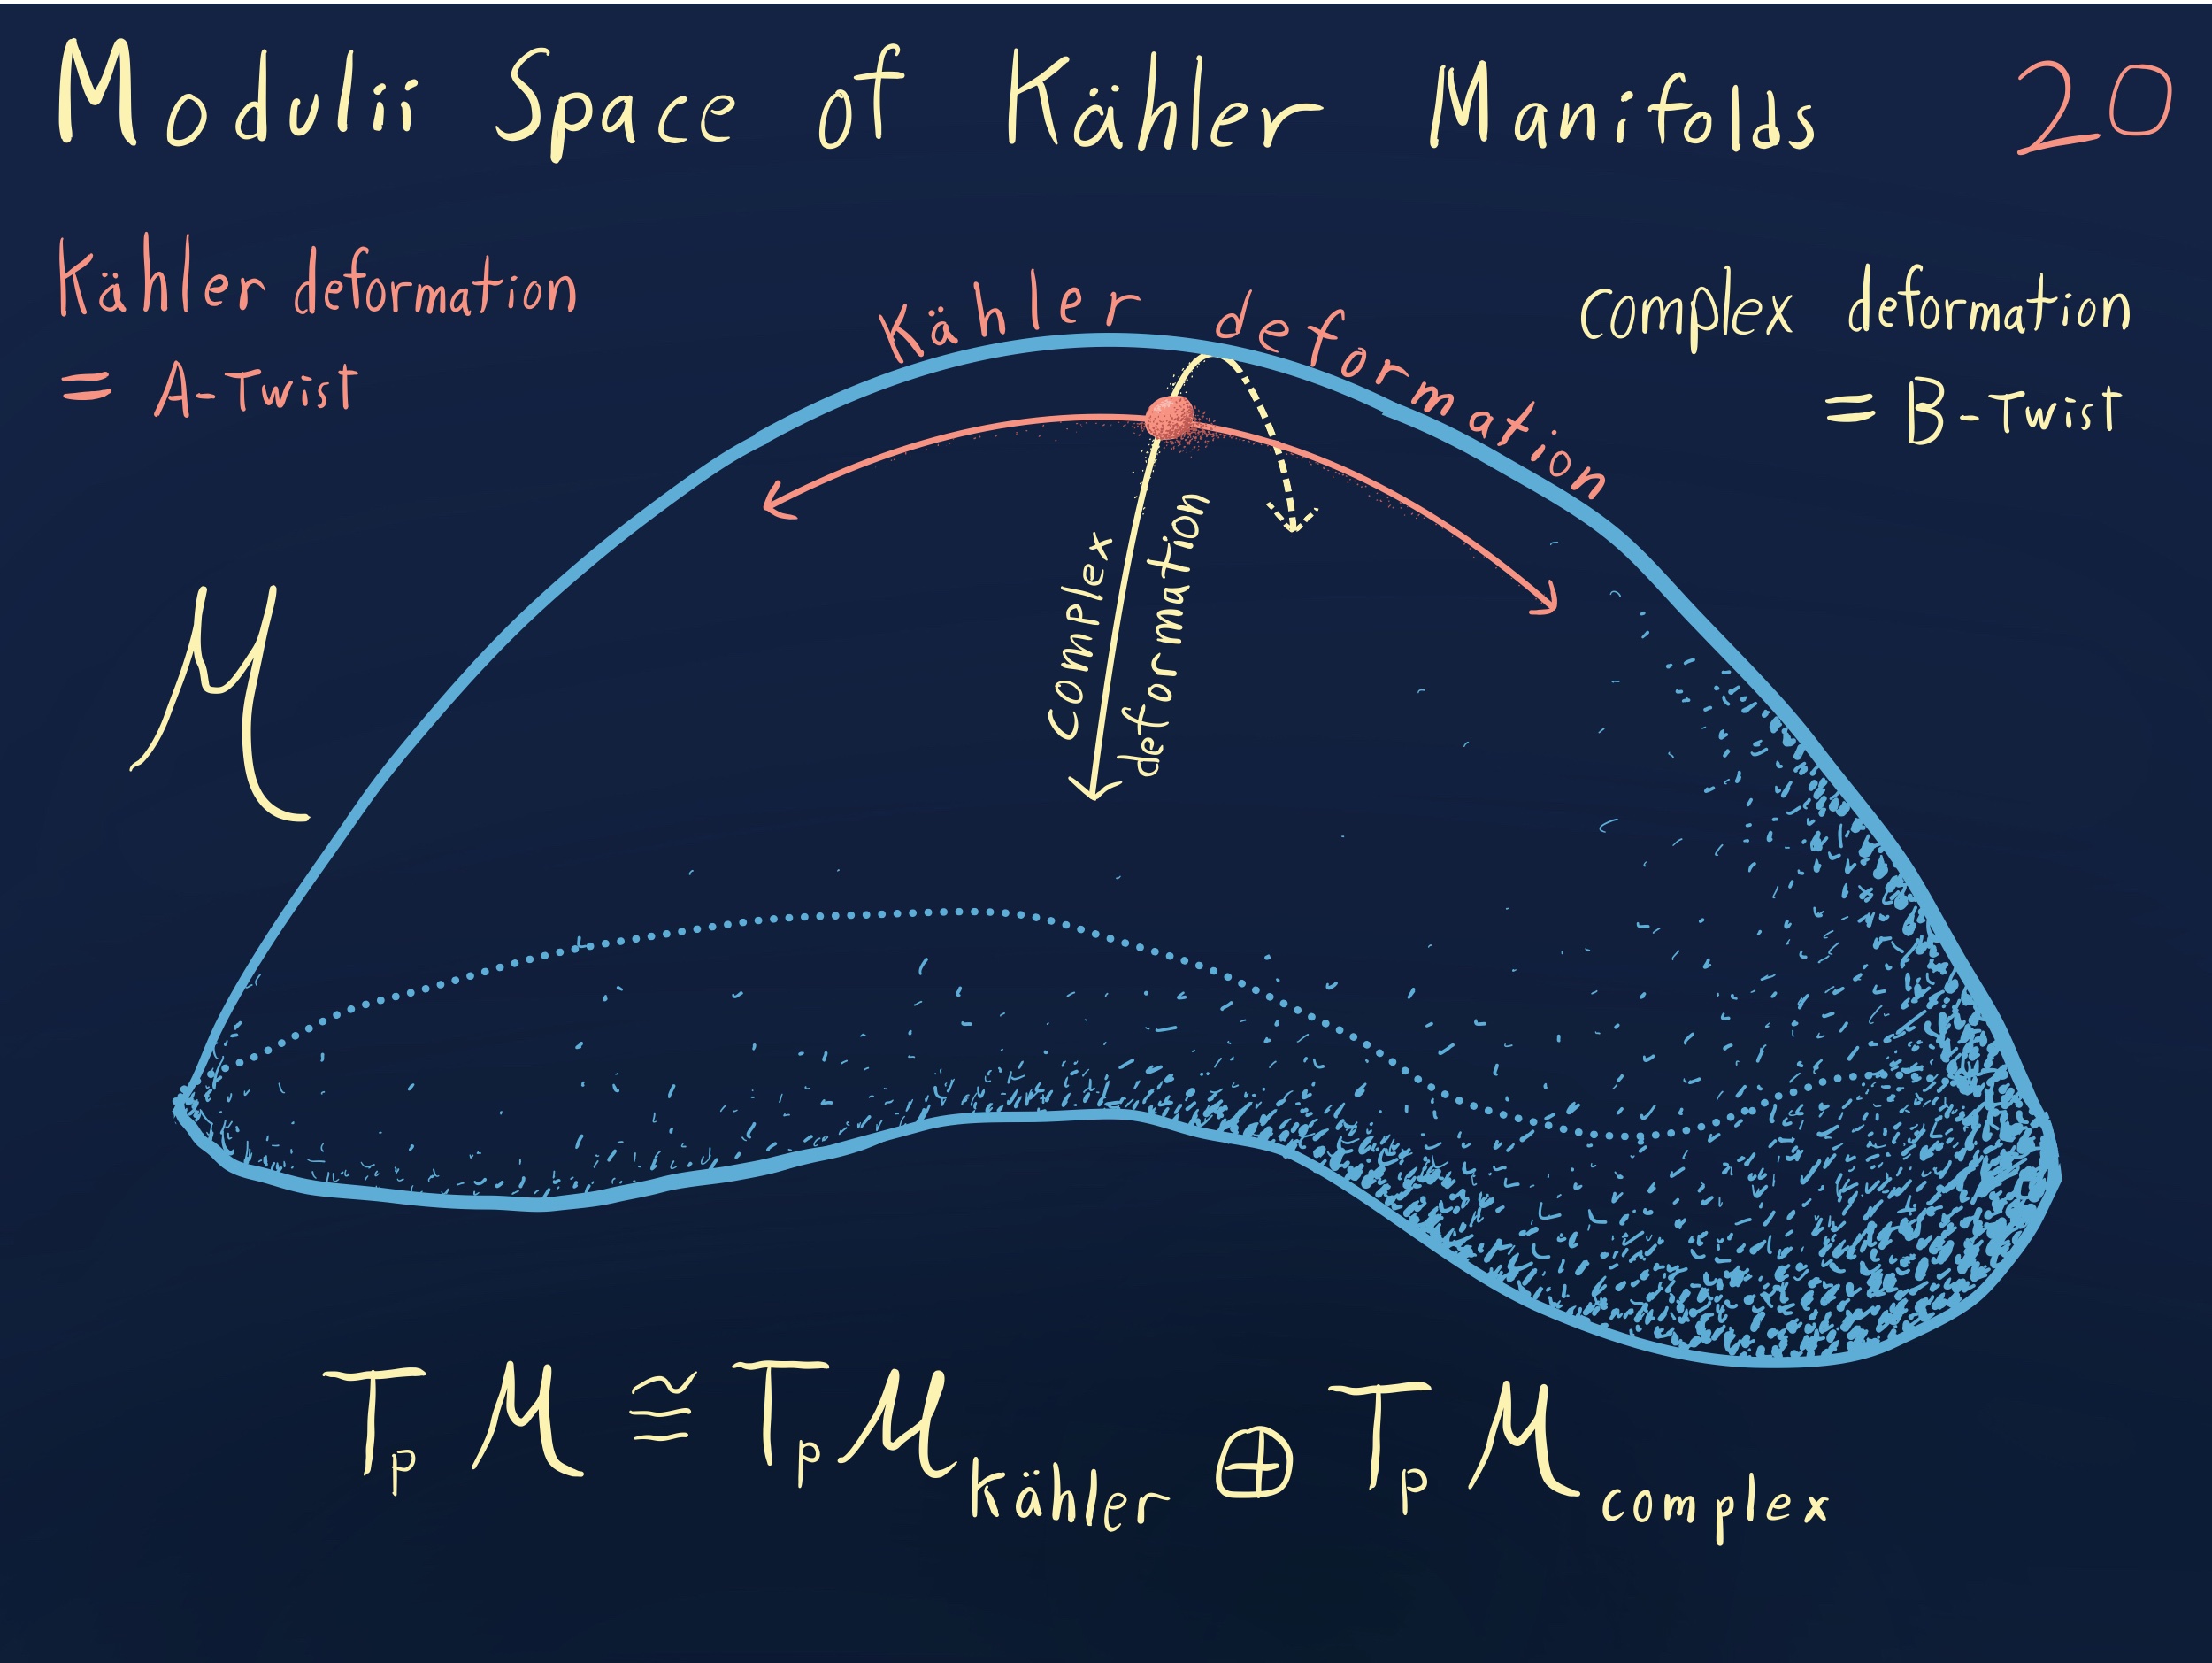 Modulii Space of Kähler Manifolds 20
Kähler deformation
= A-Twist
Kähler deformation
complex deformation
= B-Twist
complex
deformation
M
TₚM ≅ TₚM_Kähler ⊕ TₚM_complex